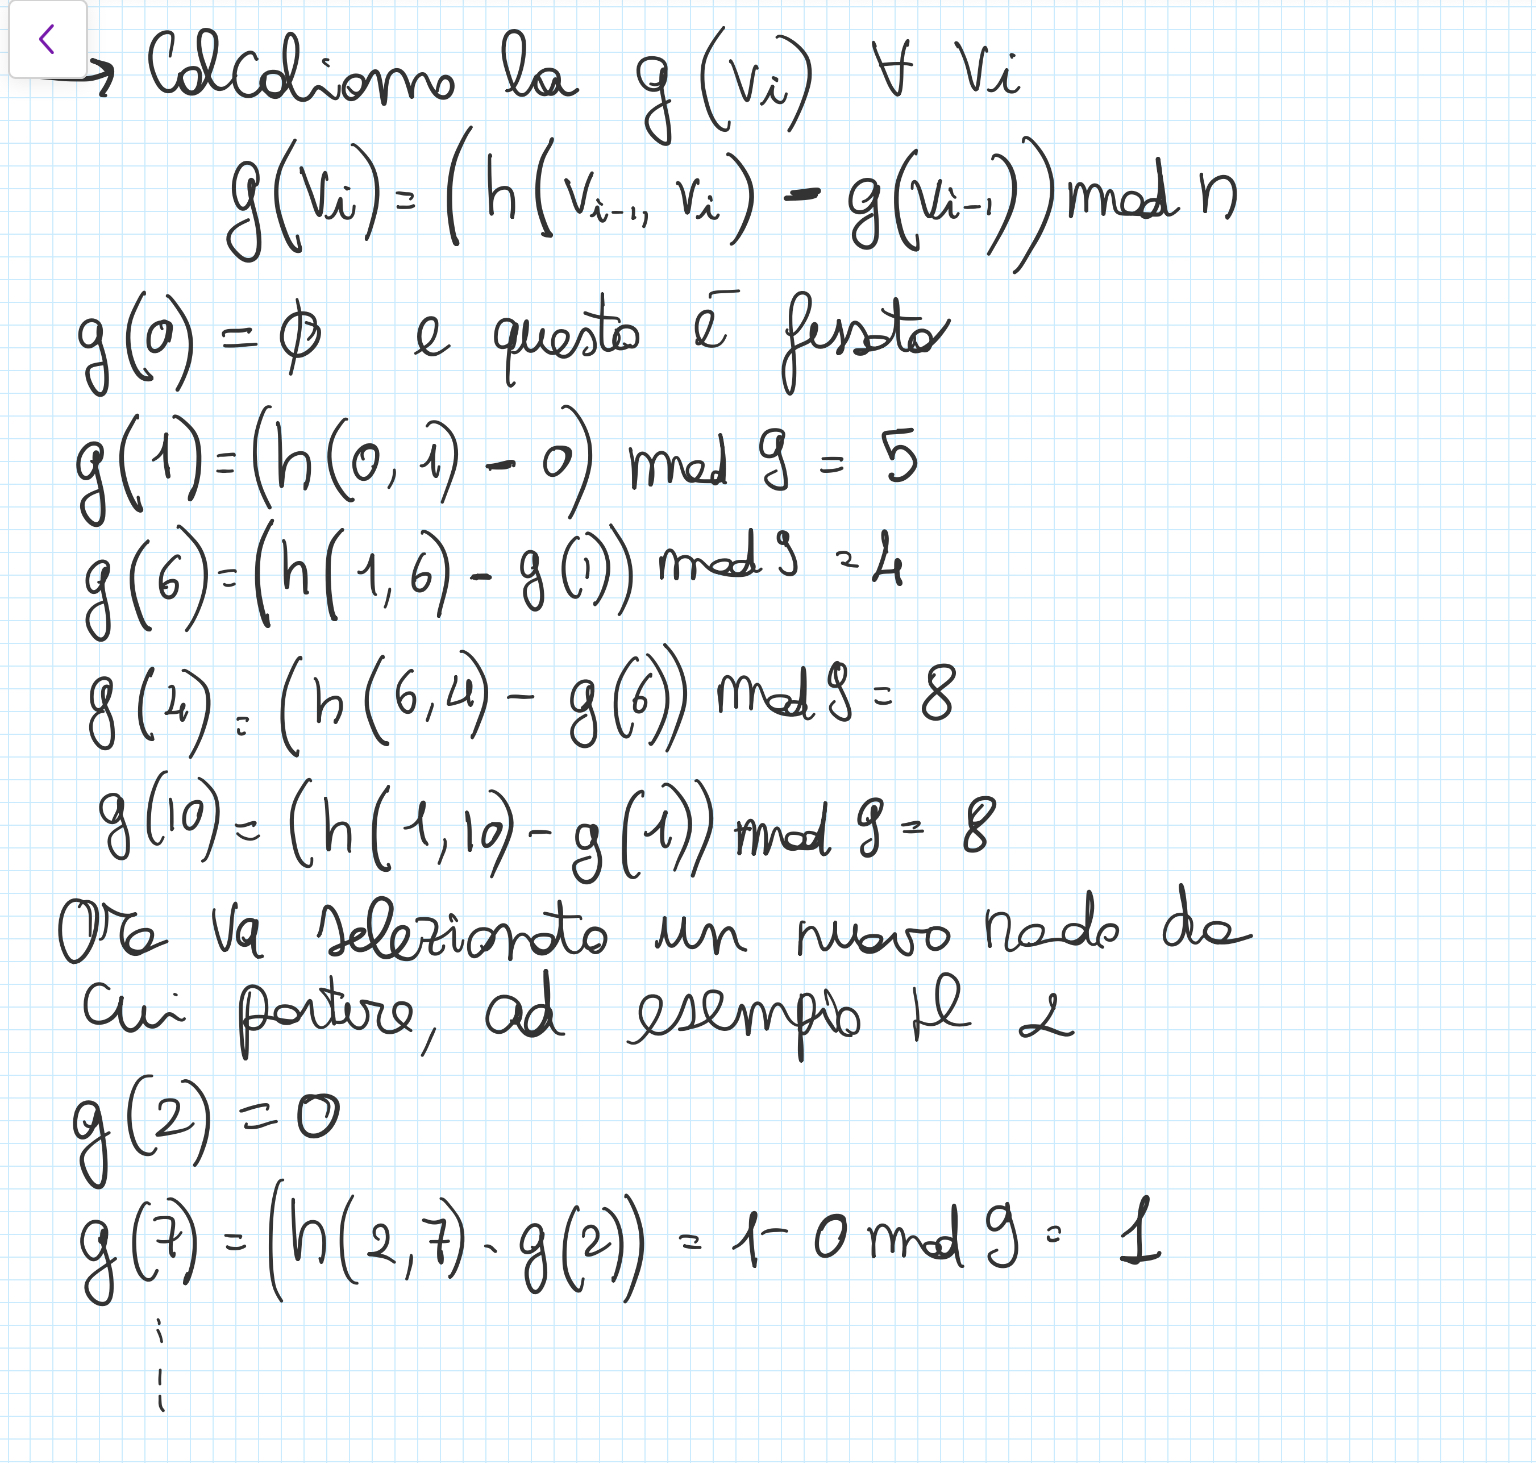 → Calcoliamo la g(vi) ∀ vi
g(vi) = (h(vi-1, vi) - g(vi-1)) mod n
g(0) = ∅ e questo è fissato
g(1) = (h(0, 1) - 0) mod 9 = 5
g(6) = (h(1, 6) - g(1)) mod 9 = 4
g(4) = (h(6,4) - g(6)) mod 9 = 8
g(10) = (h(1,10) - g(1)) mod 9 = 8
Ora va selezionato un nuovo nodo da
cui partire, ad esempio il 2
g(2) = 0
g(7) = (h(2,7) - g(2)) = 1 - 0 mod 9 = 1